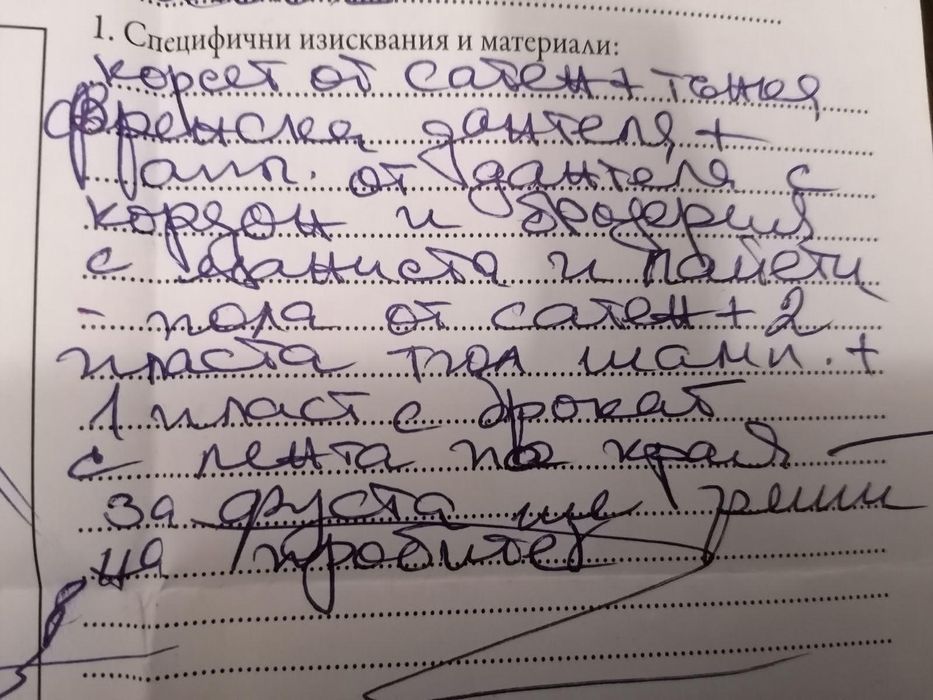 1. Специфични изисквания и материали:
корсет от сатен + тънка
френска дантела +
апл. от дантела с
кордон и бродерия
с мъниста и пайети
- пола от сатен + 2
пласта тюл шамп. +
1 пласт с брокат
с лента по края
за фуста ще реши
на пробите